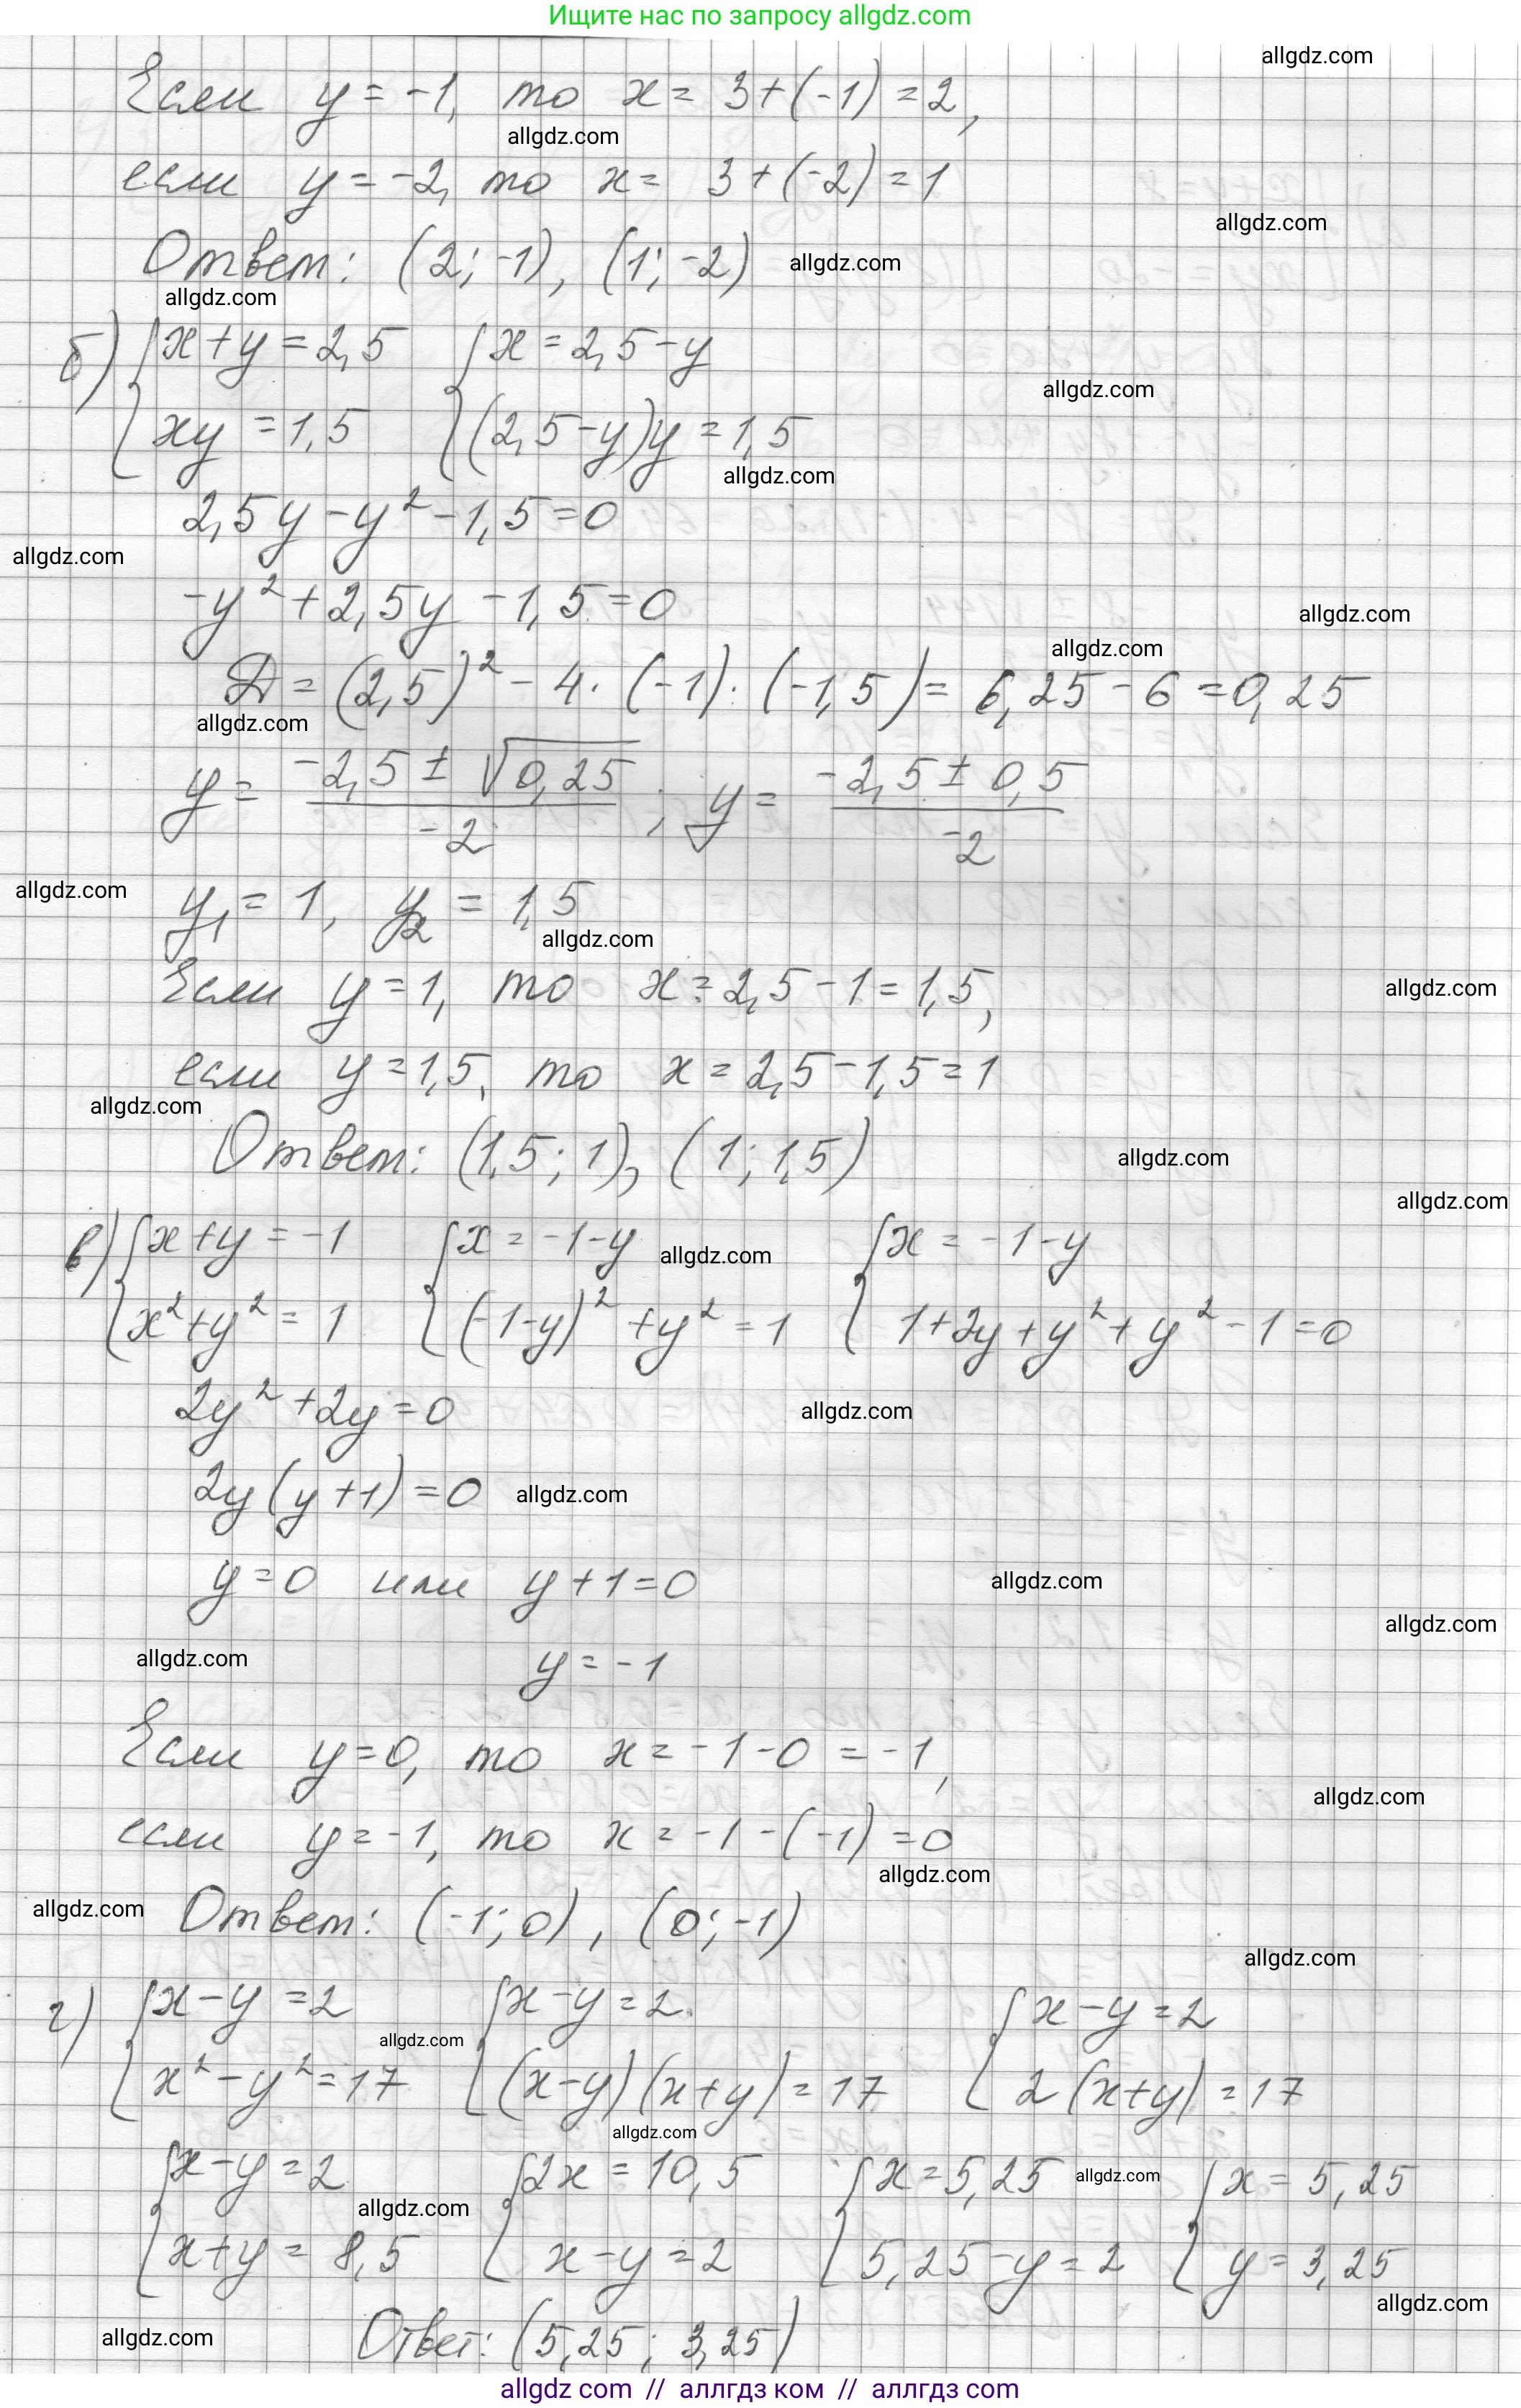 Ищите нас по запросу allgdz.com
allgdz.com
Если y = -1, то x = 3+(-1) = 2,
allgdz.com
если y = -2, то x = 3+(-2) = 1
allgdz.com
Ответ: (2; -1), (1; -2)
allgdz.com
allgdz.com
б) { x+y = 2,5 { x = 2,5-y
allgdz.com
xy = 1,5 (2,5-y)y = 1,5
allgdz.com
2,5y - y² - 1,5 = 0
allgdz.com
-y² + 2,5y - 1,5 = 0
allgdz.com
allgdz.com
D = (2,5)² - 4 · (-1) · (-1,5) = 6,25 - 6 = 0,25
allgdz.com
y = (-2,5 ± √0,25)/(-2) ; y = (-2,5 ± 0,5)/(-2)
allgdz.com
y₁ = 1, y₂ = 1,5
allgdz.com
Если y = 1, то x = 2,5 - 1 = 1,5,
allgdz.com
если y = 1,5, то x = 2,5 - 1,5 = 1
allgdz.com
Ответ: (1,5; 1), (1; 1,5)
allgdz.com
allgdz.com
в) { x+y = -1 { x = -1-y { x = -1-y
allgdz.com
x²+y² = 1 (-1-y)² + y² = 1 1+2y+y²+y²-1=0
2y² + 2y = 0
allgdz.com
2y(y+1) = 0
allgdz.com
y = 0 или y+1 = 0
allgdz.com
allgdz.com
y = -1
allgdz.com
Если y = 0, то x = -1-0 = -1,
allgdz.com
если y = -1, то x = -1-(-1) = 0
allgdz.com
allgdz.com
Ответ: (-1; 0), (0; -1)
allgdz.com
г) { x-y = 2 { x-y = 2 { x-y = 2
allgdz.com
x²-y² = 17 (x-y)(x+y) = 17 2(x+y) = 17
allgdz.com
{ x-y = 2 { 2x = 10,5 { x = 5,25 { x = 5,25
allgdz.com
allgdz.com
x+y = 8,5 x-y = 2 5,25-y = 2 y = 3,25
allgdz.com
allgdz.com
Ответ: (5,25; 3,25)
allgdz com // аллгдз ком // аллгдз com